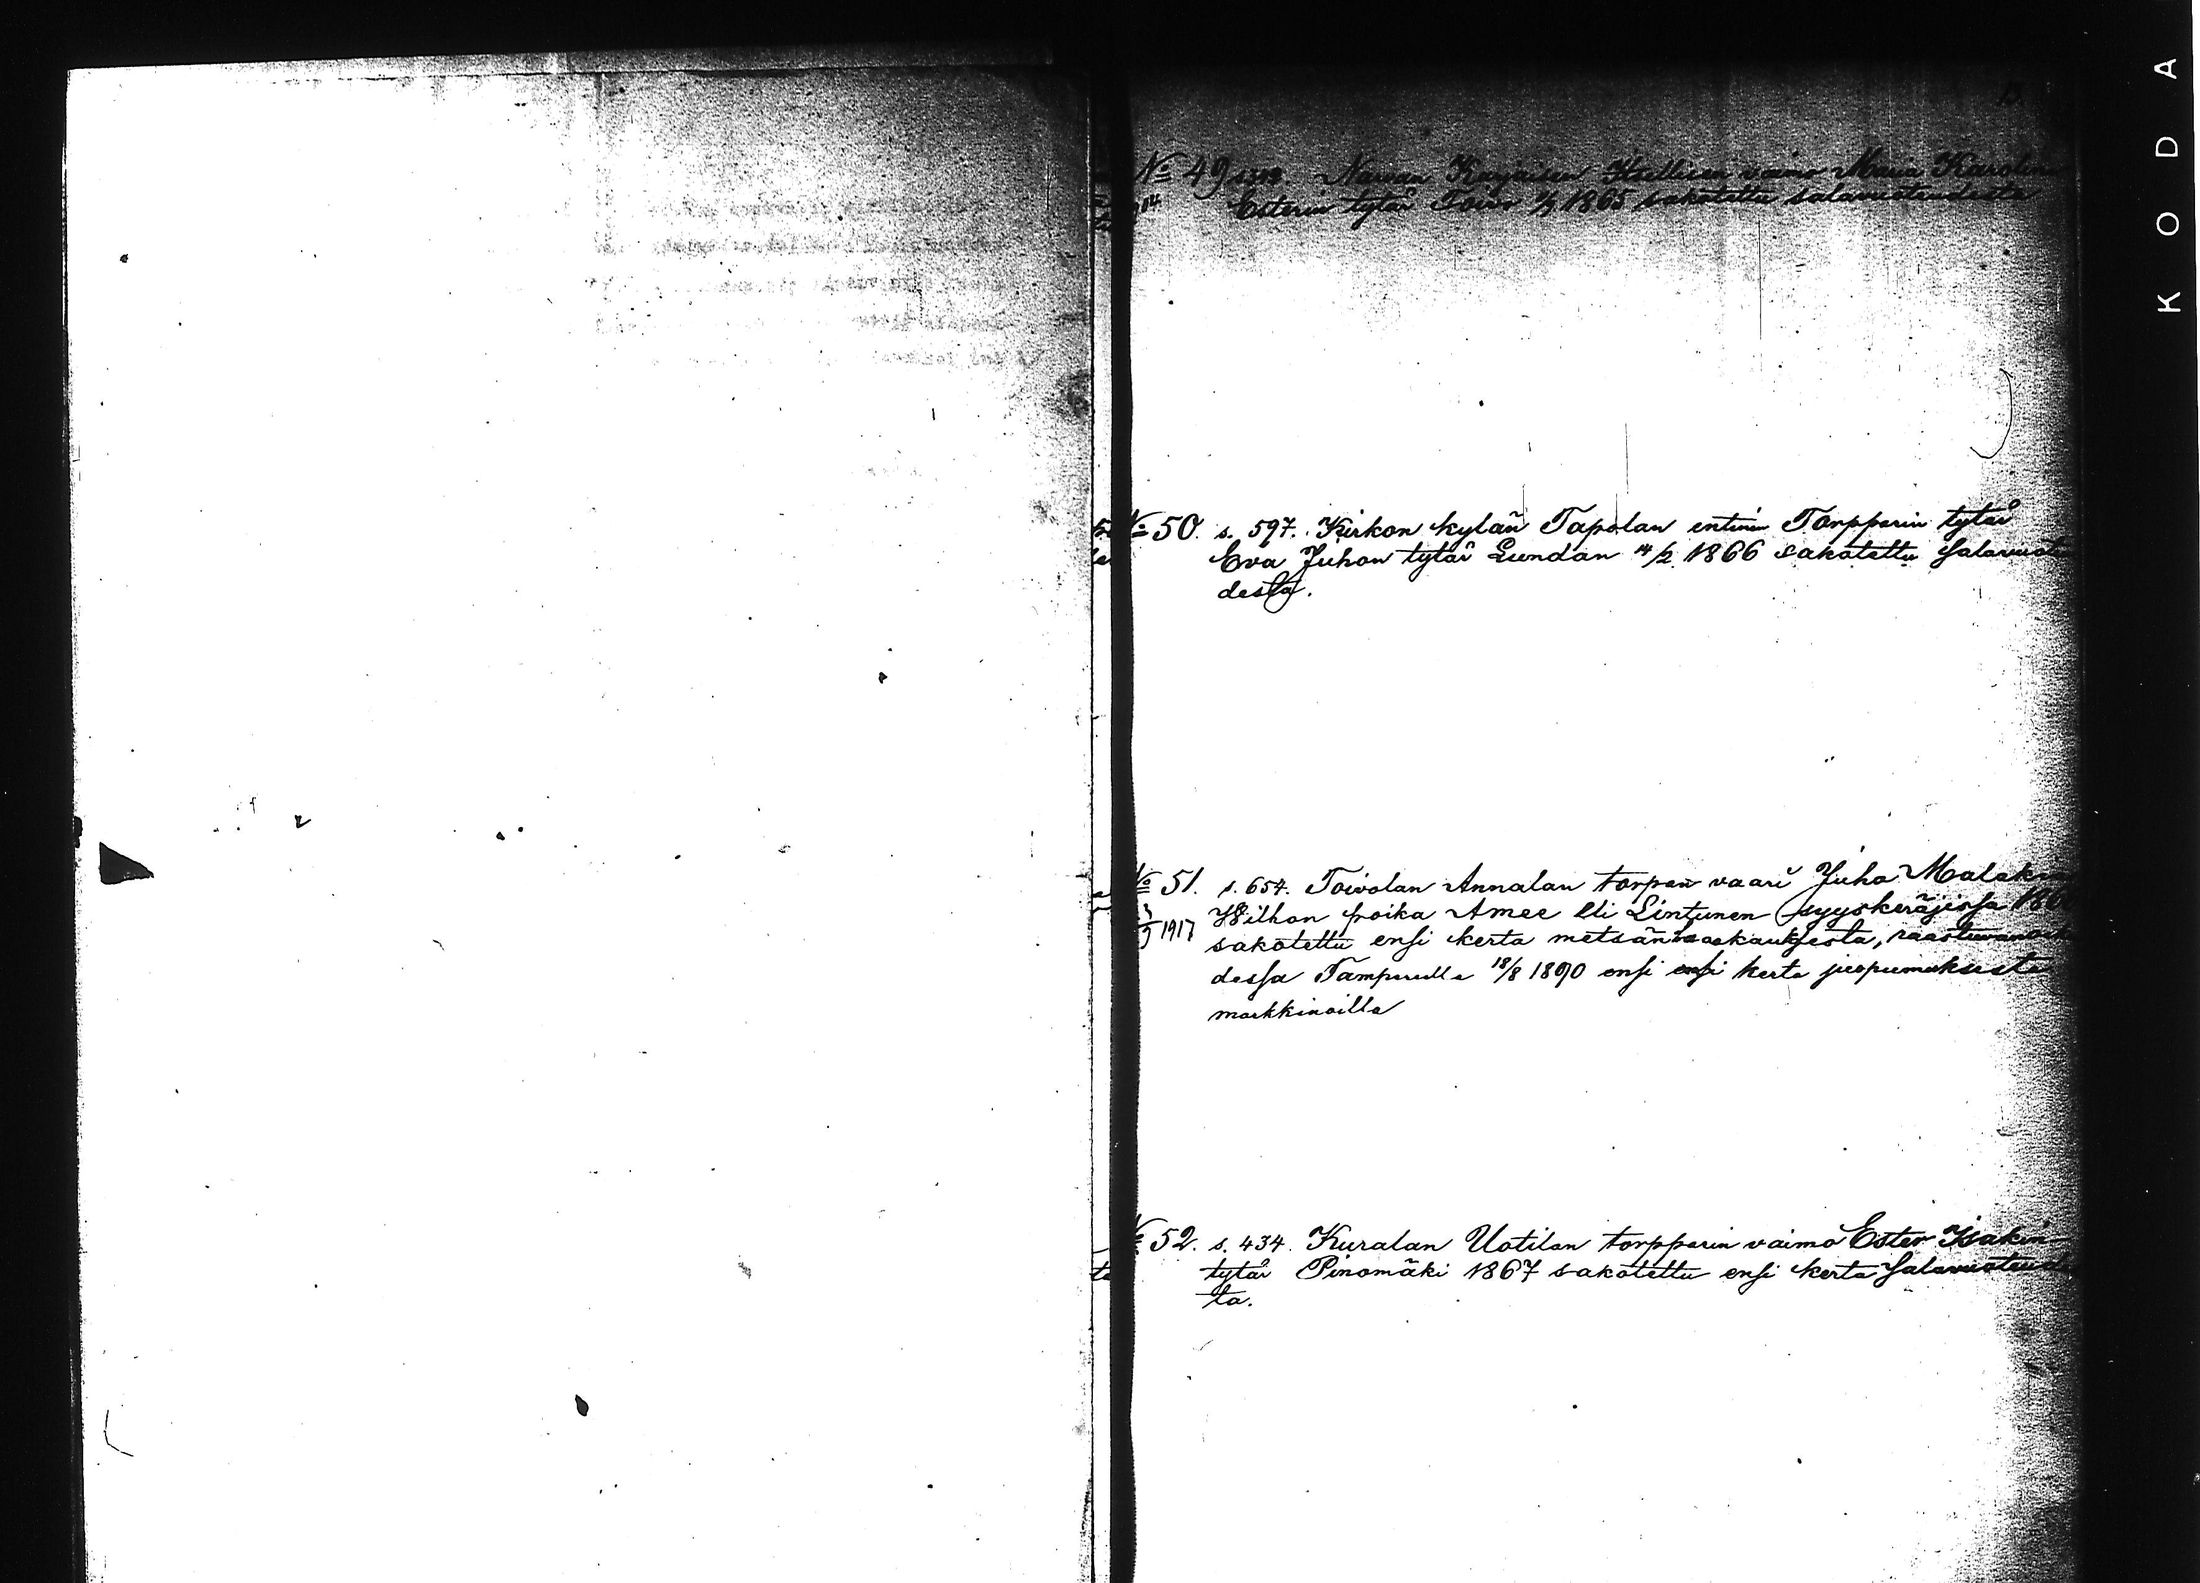 KODAK
№ 49 Karjaisen vaimo Maria Karolin
Esterin tytär 1865 sakotettu salavuoteudesta
№ 50. s. 597. Kirkon kylän Tapolan entinen Torpparin tytär
Eva Juhon tytär Lundan 14/2 1866 sakotettu salavuoteu
desta.
№ 51. s. 654. Toivolan Annalan torpan vaari Juha Malak
3/9 1917 Wilhon poika Amee eli Lintunen syyskeräjissä 186
sakotettu ensi kerta metsänhaaskauksesta, raastuvan
dessa Tampereella 18/8 1890 ensi ensi kerta juopumuksesta
markkinoilla
№ 52. s. 434. Kuralan Uotilan torpparin vaimo Ester Isakin
tytär Pinomäki 1867 sakotettu ensi kerta salavuoteud
ta.